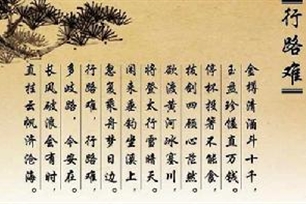 『行路难』
金樽清酒斗十千，
玉盘珍馐直万钱。
停杯投箸不能食，
拔剑四顾心茫然。
欲渡黄河冰塞川，
将登太行雪暗天。
闲来垂钓坐溪上，
忽复乘舟梦日边。
行路难，行路难，
多歧路，今安在。
长风破浪会有时，
直挂云帆济沧海。